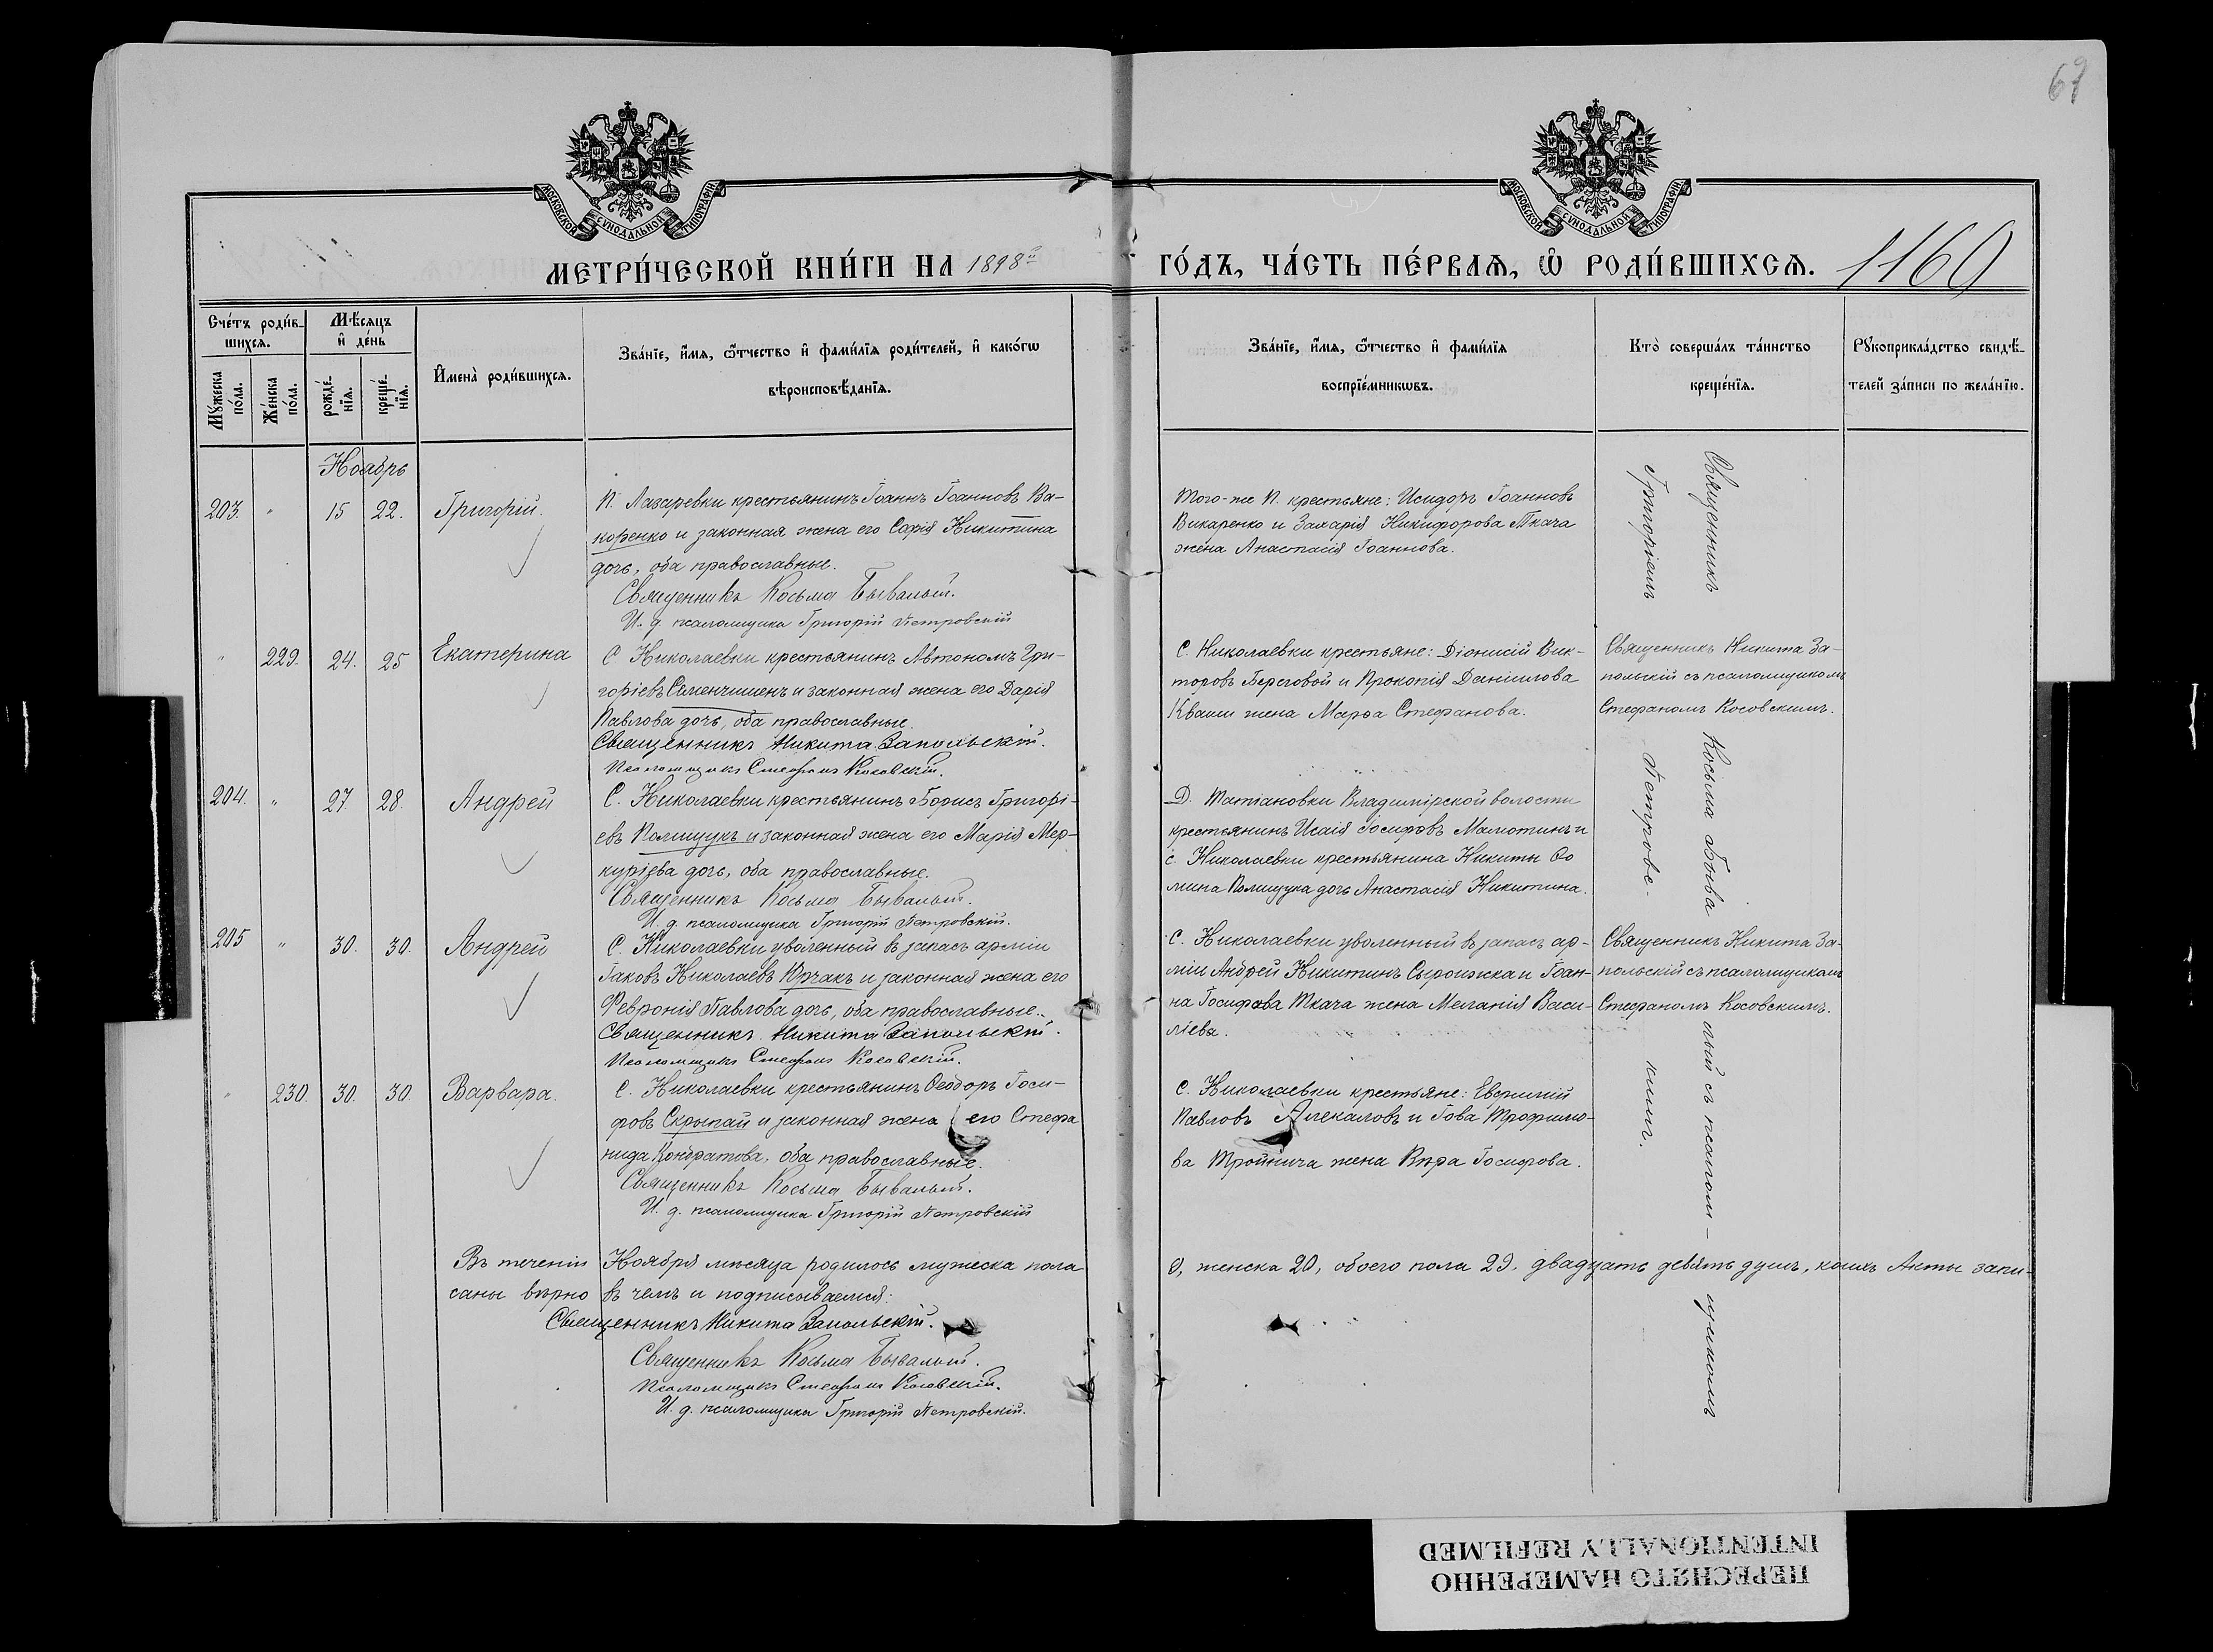 69
МОСКОВСКОЙ СѴНОДАЛЬНОЙ ТИПОГРАФІИ
МОСКОВСКОЙ СѴНОДАЛЬНОЙ ТИПОГРАФІИ
МЕТРИ́ЧЕСКОЙ КНИ́ГИ НА 1898й ГО́ДЪ, ЧА́СТЬ ПЕ́РВАѦ, Ѽ РОДИ́ВШИХСѦ. 1160
Сче́тъ роди́в-
шихсѧ.
Мꙋжеска по́ла.
Же́нска по́ла.
Мѣ́сѧцъ
и҆ де́нь
рожде́-
нїѧ.
креще́-
нїѧ.
И҆мена̀ роди́вшихсѧ.
Зва́нїе, и҆́мѧ, ѻ҆́тчество и҆ фами́лїѧ роди́телей, и҆ како́гѡ
вѣроисповѣ́данїѧ.
Зва́нїе, и҆́мѧ, ѻ҆́тчество и҆ фами́лїѧ
воспрїе́мникѡвъ.
Кто̀ соверша́лъ та́инство
креще́нїѧ.
Рꙋкоприкла́дство свидѣ́-
телей за́писи по жела́нїю.
Ноябрь
203. " 15 22. Григорій.
П. Лазаревки крестьянинъ Іоаннъ Іоанновъ Ва-
коренко и законная жена его Софія Никитина
дочь, оба православные.
Священникъ Косьма Бывалый.
И. д. псаломщика Григорій Петровскій
Того-же П. крестьяне: Исидоръ Іоанновъ
Викаренко и Захарія Никифорова Ткача
жена Анастасія Іоаннова.
" 229. 24. 25 Екатерина
С Николаевки крестьянинъ Автономъ Гри-
горіевъ и законная жена его Дарія
Павлова дочь, оба православные.
Священникъ Никита Запольскій.
Псаломщикъ Стефанъ Косовскій.
С. Николаевки крестьяне: Діонисій Вик-
торовъ Береговой и Прокопія Даніилова
Кваши жена Марѳа Стефанова.
Священникъ Никита За-
польскій съ псаломщикомъ
Стефаномъ Косовскимъ.
204. " 27. 28. Андрей
С. Николаевки крестьянинъ Борисъ Григорі-
евъ Полищукъ и законная жена его Марія Мер-
куріева дочь, оба православные.
Священникъ Косьма Бывалый.
И. д. псаломщика Григорій Петровскій.
Д. Татіановки Владимірской волости
крестьянинъ Исаія Іосифовъ Малютинъ и
с. Николаевки крестьянина Никиты Ѳо
мина Полищука дочь Анастасія Никитина.
205 " 30. 30. Андрей
С. Николаевки уволенный въ запасъ арміи
Іаковъ Николаевъ Юрчакъ и законная жена его
Февронія Павлова дочь, оба православные.
Священникъ Никита Запольскій.
Псаломщикъ Стефанъ Косовскій.
С. Николаевки уволенный въ запасъ ар-
міи Андрей Никитинъ Сыроижка и Іоан-
на Іосифова Ткача жена Меланія Васи-
ліева.
Священникъ Никита За-
польскій съ псаломщикомъ
Стефаномъ Косовскимъ.
" 230. 30. 30. Варвара.
С. Николаевки крестьянинъ Ѳеодоръ Іоси-
фовъ Скрыпай и законная жена его Стефа
нида Кондратова, оба православные.
Священникъ Косьма Бывалый.
И. д. псаломщика Григорій Петровскій
С. Николаевки крестьяне: Евфимій
Павловъ Алекаловъ и Іова Трофимо-
ва Тройнича жена Вѣра Іосифова.
Священникъ Косьма Бывалый съ псалом-щикомъ
Григоріемъ Петровс-кимъ.
Въ теченіи Ноября мѣсяца родилось мужеска пола 9, женска 20, обоего пола 29. двадцать девять душъ, коихъ Акты запи-
саны вѣрно въ чемъ и подписываемся:
Священникъ Никита Запольскій.
Священникъ Косьма Бывалый.
Псаломщикъ Стефанъ Косовскій.
И. д. псаломщика Григорій Петровскій.
ПЕРЕСНЯТО НАМЕРЕННО
INTENTIONALLY REFILMED